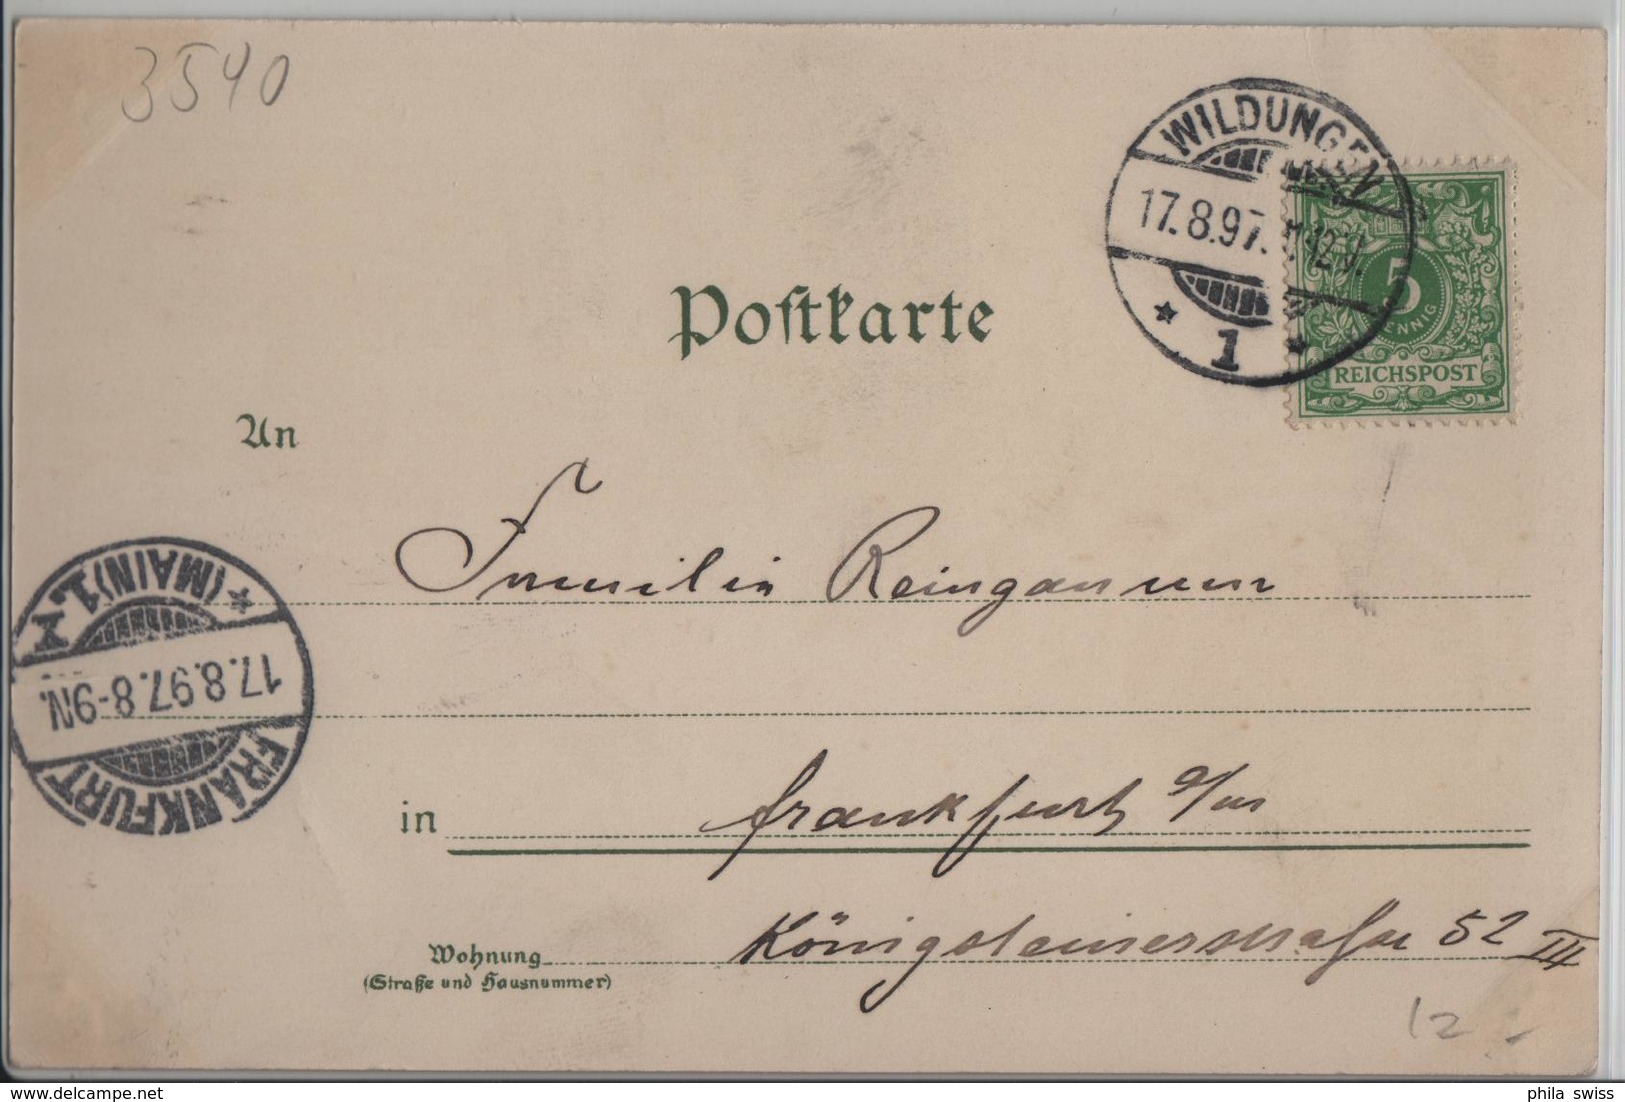 3540
WILDUNGEN
17.8.97. 11-12V.
* 1 *
5
PFENNIG
REICHSPOST
Postkarte
An
Familie Reinganum
FRANKFURT
17.8.97.8-9N.
* (MAIN) 1. *
in Frankfurt a/m
Wohnung Königsteinerstraße 52 III
(Straße und Hausnummer)
12
phila swiss